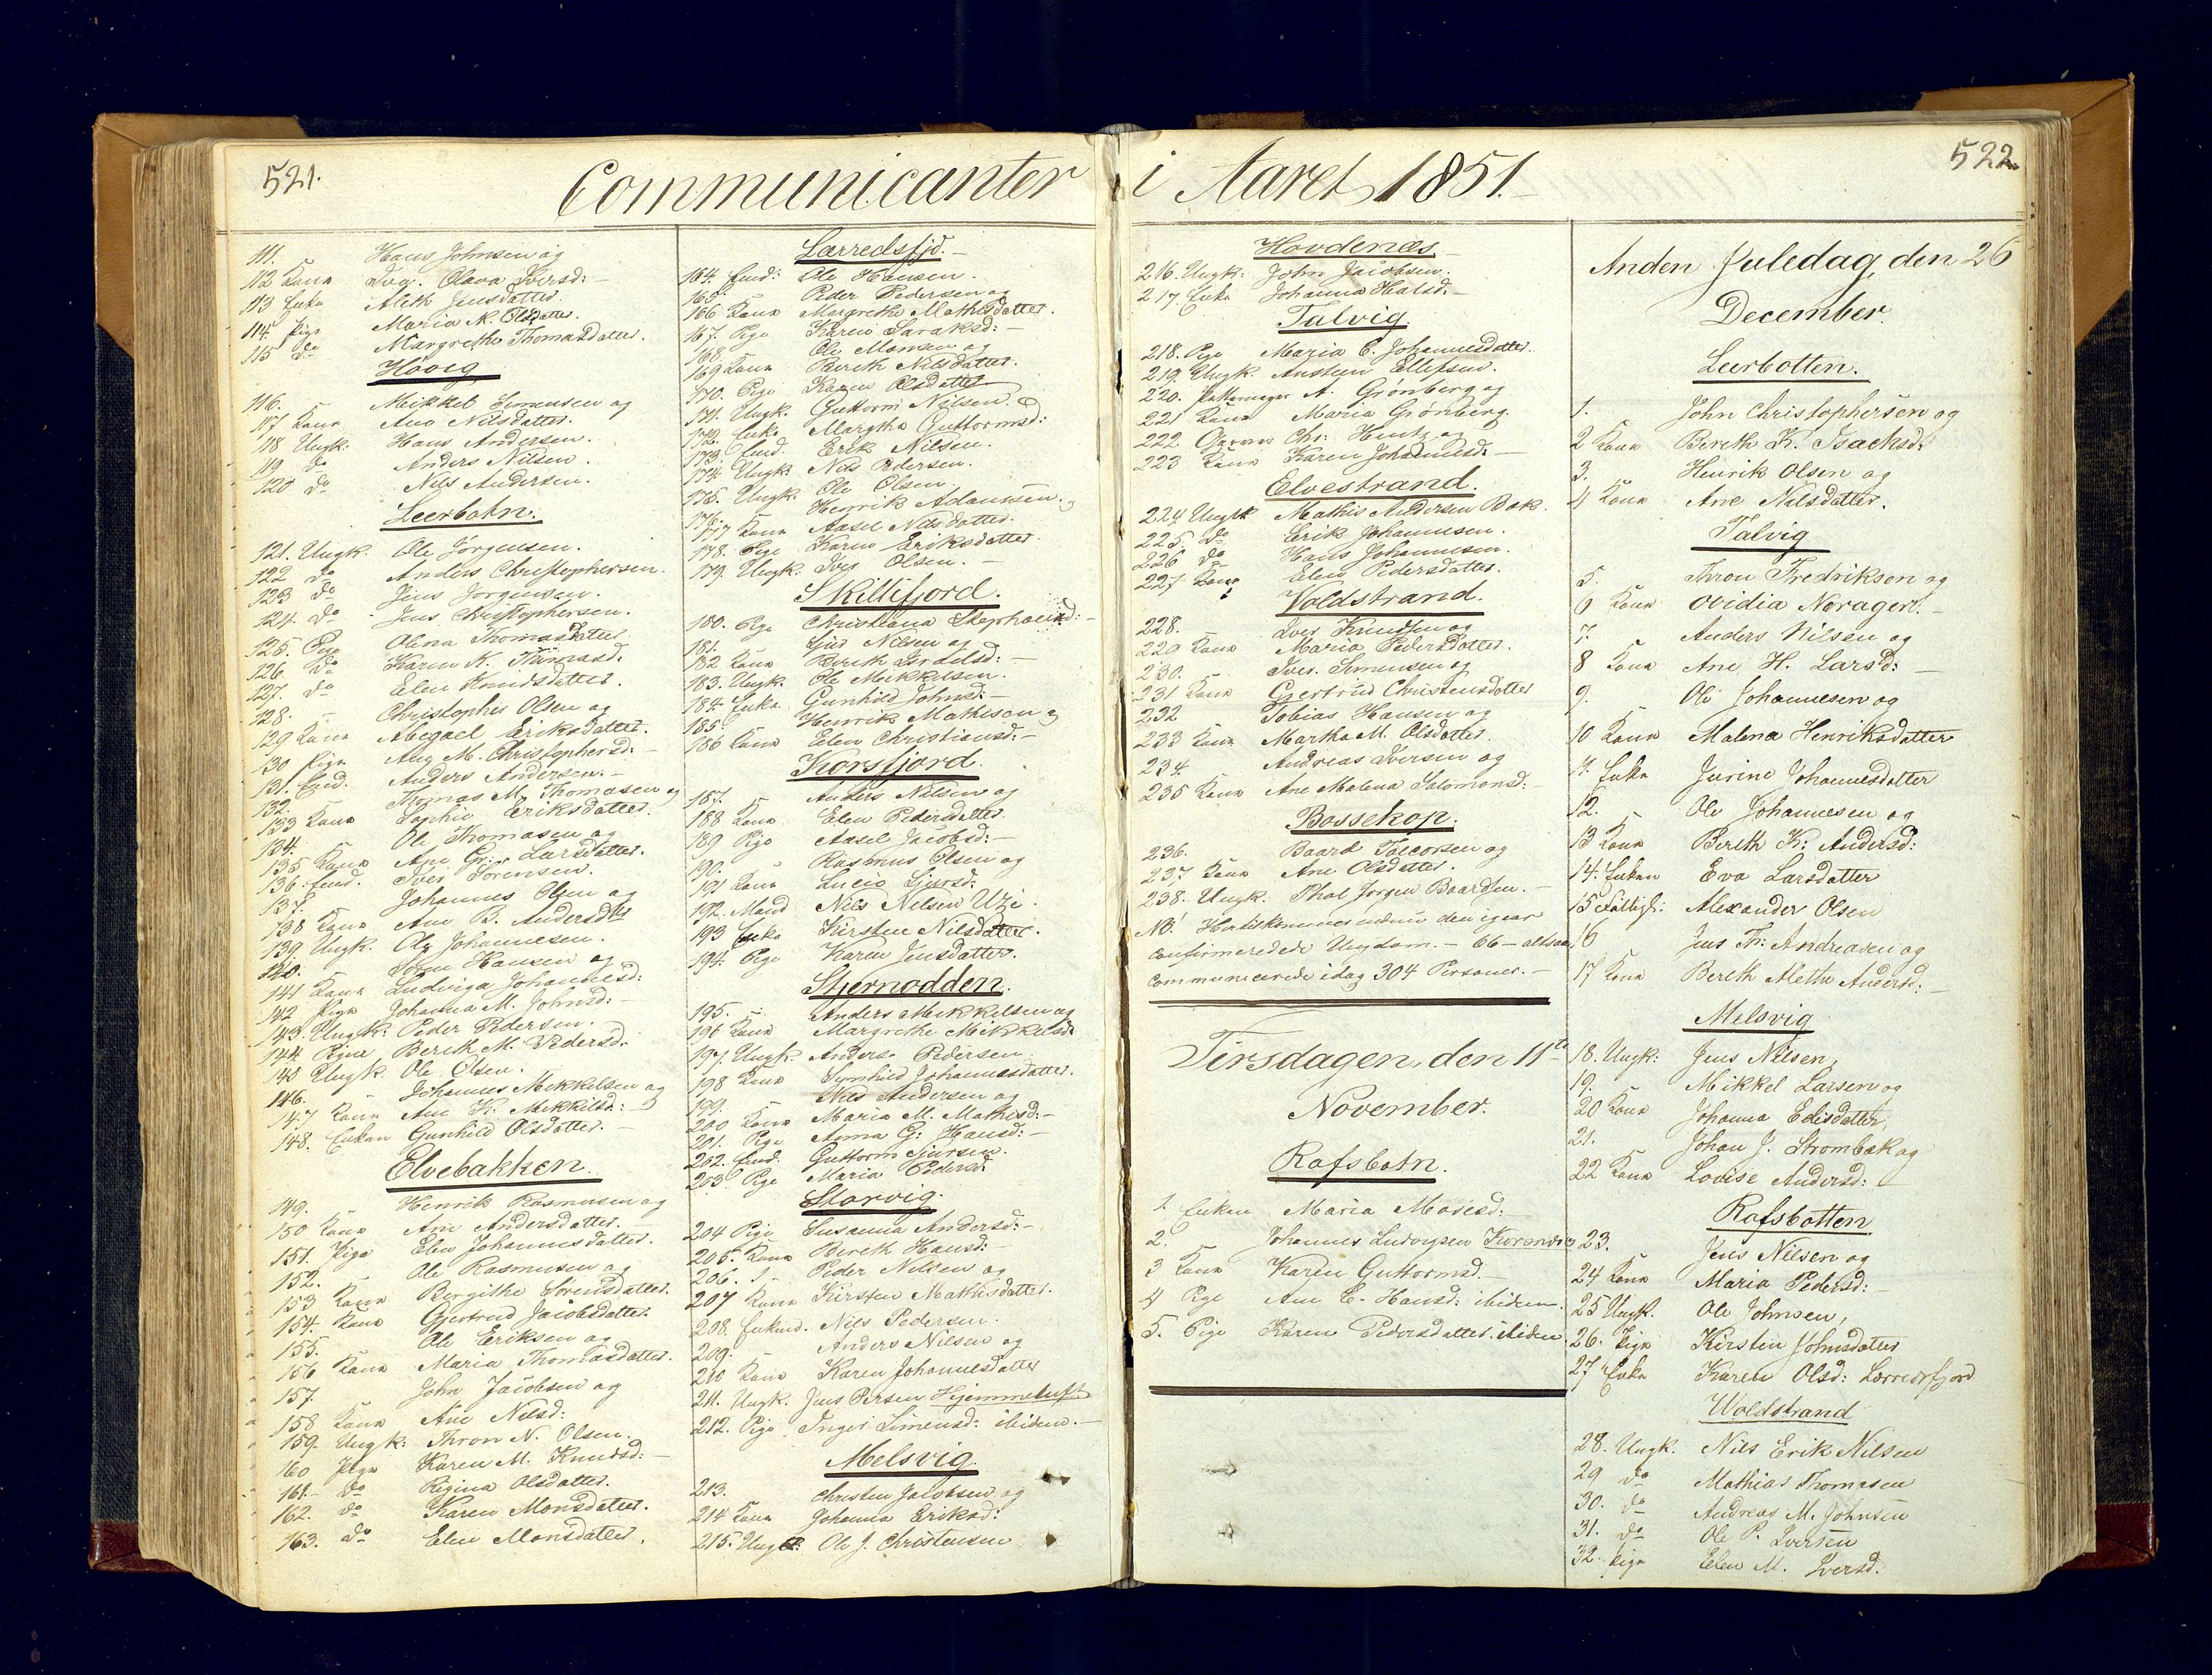 521.
Communicanter
111. Hans Johnsen og
112 Kone Ovg. Olava Iversd:
113 Enke Aleth Jensdatter.
114. Pige Maria K. Olsdatter.
115 do Margrethe Thomasdatter.
Hövig
116. Mikkel Simensen og
117 Kone Ane Nilsdatter.
118 Ungk. Hans Andersen.
119 do Anders Nilsen.
120 do Nils Andersen.
Leerbotn.
121. Ungk. Ole Jörgensen.
122 do Anders Christophersen.
123 do Jens Jorgensen.
124. do Jens Christophersen.
125. Pige Olena Thomasdatter
126. do Karen K. Thomasd:
127. do Elen Knudsdatter.
128. Christopher Olsen og
129 Kone Abegael Eriksdatter.
130 Pige Ane M. Christophersd:
131. Enkd. Anders Andersen.
132. Thomas M. Thomasen og
133 Kone Sophie Eriksdatter.
134. Ole Thomasen og
135 Kone Ane Gr: Larsdatter.
136. Enkd. Iver Sörensen.
137. Johannes Olsen og
138 Kone Ane B. Andersdtr
139. Ungk. Ole Johannesen.
140. Hansen og
141 Kone Ludviga Johannesd:
142 Pige Johanna M. Johnsd:
143. Ungk: Peder Pedersen.
144 Pige Bereth M. Pedersd:
145 Ungk. Ole Olsen.
146. Johannes Mikkelsen og
147 Kone Ane K. Mikkelsd:
148. Enken Gunhild Olsdatter.
Elvebakken.
149. Henrik Rasmusen og
150 Kone Ane Andersdatter.
151. Pige Elen Johannesdatter.
152. Ole Rasmusen og
153 Kone Bergithe Sörensdatter.
154. Kone Gjertrud Jacobsdatter.
155. Ole Eriksen og
156 Kone Maria Thomasdatter.
157. John Jacobsen og
158 Kone Ane Nilsd:
159. Ungk: Thron N. Olsen.
160 Pige Karen M. Knudsd:
161. do Regina Olsdatter.
162. do Karen Monsdatter.
163. do Elen Monsdatter.
Lærredsfjd.
164. Enkd: Ole Hansen.
165. Peder Pedersen og
166 Kone Margrethe Mathisdatter.
167. Pige Karen Saraksd:
168. Ole Monsen og
169 Kone Bereth Nilsdatter.
170. Pige Karen Olsdatter
171. Ungk. Guttorm Nilsen.
172. Enke Margthe Guttormsd:
173. Enkd. Erik Nilsen.
174. Ungk: Nils Pedersen.
175. Ungk. Ole Olsen.
176. Henrik Adamsen og
177 Kone Aasel Nilsdatter.
178. Pige Karen Eriksdatter
179. Ungk: Iver Olsen.
Skillifjord.
180. Pige Christiana Stephansd:
181. Sjur Nilsen og
182 Kone Bereth
183. Ungk. Ole Mikkelsen.
184. Enke. Gunhild Johnsd:
185. Henrik Mathisen og
186 Kone Elen Christiansd:
Korsfjord.
187. Anders Nilsen og
188 Kone Elen Pedersdatter.
189 Pige Aasel Jacobsd:
190. Rasmus Olsen og
191 Kone Lucie Sjursd.
192. Mand Nils Nilsen Uzi.
193 Enke Kirsten Nilsdatter.
194. Pige Karen Jensdatter.
Stjernodden.
195. Anders Mikkelsen og
196 Kone Margrethe Mikkelsd:
197. Ungk. Anders Pedersen
198 Kone Synhild Johannesdatter.
199. Nils Andersen og
200 Kone Maria M. Mathisd:
201. Pige Anna G: Hansd:
202. Enkd. Guttorm Sjursen.
203. Pige Maria Pedersd
Storvig.
204 Pige Susanna Andersd:
205. Kone Bereth Hansd:
206. Peder Nilsen og
207 Kone Kirsten Mathisdatter.
208. Enkmd. Nils Pedersen.
209. Anders Nilsen og
210 Kone Karen Johannesdatter
211. Ungk. Jens Persen Hjemmeluft
212. Pige Inger Simensd: ibidem.
Melsvig.
213. Christen Jacobsen og
214 Kone Johanna Eriksd:
215. Ungk: Ole J. Christensen
i Aaret 1851.
522
Hovdenæs
216. Ungk: John Jacobsen.
217. Enke Johanna Halsd:
Talvig
218. Pige Maria C. Johannesdatter.
219. Ungk. Austeen Ellefsen.
220. Pottemager A. Grönberg og
221 Kone Maria Grönberg.
222. Garver Chr: Hentz og
223 Kone Karen Johannesd:
Elvestrand.
224 Ungk Mathis Andersen Bak.
225. do Erik Johannesen.
226 do Hans Johannesen.
227. Kone Elen Pedersdatter.
Voldstrand.
228. Iver Knudsen og
229 Kone Maria Pedersdatter.
230. Iver Simensen og
231 Kone Gjertrud Christensdatter
232 Tobias Hansen og
233 Kone Martha M. Olsdatter.
234. Andreas Iversen og
235 Kone Ane Malena Salomonsd:
Bossekop.
236. Baard Torcorsen og
237. Kone Ane Olsdatter.
238. Ungk. Thol Jörgen Baardsen.
NB! Hertil kommer endnu den igaar
confirmerede Ungdom. - 66 - altsaa
communicerede idag 304 Personer.
Tirsdagen, den 11te
November.
Rafsbotn.
1. Enken Maria Mosesd:
2. Johannes Ludvigsen Kurænæs
3 Kone Karen Guttormsd.
4 Pige Ane E. Hansd: ibidem.
5. Pige Karen Pedersdatter. ibidem
Anden Juledag, den 26
December.
Leerbotten.
1. John Christophersen og
2 Kone Bereth K. Isacksd:
3. Henrik Olsen og
4 Kone Ane Nilsdatter.
Talvig
5. Thron Fredriksen og
6 Kone Ovidia Norager.
7. Anders Nilsen og
8 Kone Ane H. Larsd:
9. Ole Johannesen og
10 Kone Malena Henriksdatter
11. Enke Jurine Johannesdatter
12. Ole Johannesen og
13 Kone Bereth K: Andersd:
14. Enken Eva Larsdatter
15 Fattigl: Alexander Olsen
16 Jens Th: Andreasen og
17 Kone Bereth Alethe Andersd:
Melsvig
18. Ungk: Jens Nilsen,
19. Mikkel Larsen og
20 Kone Johanna Edisdatter,
21. Johan J. Strombæk og
22 Kone Lovise Andersd:
Rafsbotten
23. Jens Nilsen og
24 Kone Maria Pedersd:
25 Ungk. Ole Johnsen,
26. Pige Kirsten Johnsdatter
27 Enke Karen Olsd: Lærredsfjord
Woldstrand
28. Ungk. Nils Erik Nilsen
29 do Mathias Thomasen
30. do Andreas M. Johnsen
31. do Ole P. Iversen
32. Pige Elen M. Iversd.